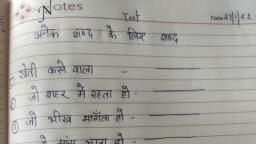 Notes
Test
Date 21/1/22
अनेक शब्द के लिए शब्द
① खेती करने वाला -
② जो शहर में रहता हो -
③ जो भीख माँगता हो -